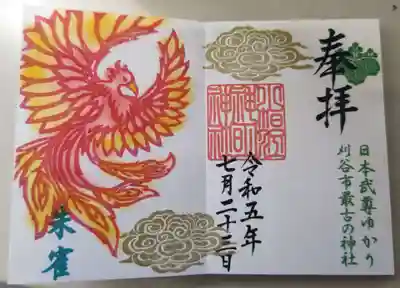 奉拝
日本武尊ゆかり
刈谷市最古の神社
小垣江
神明
神社
令和五年
七月二十三日
朱雀